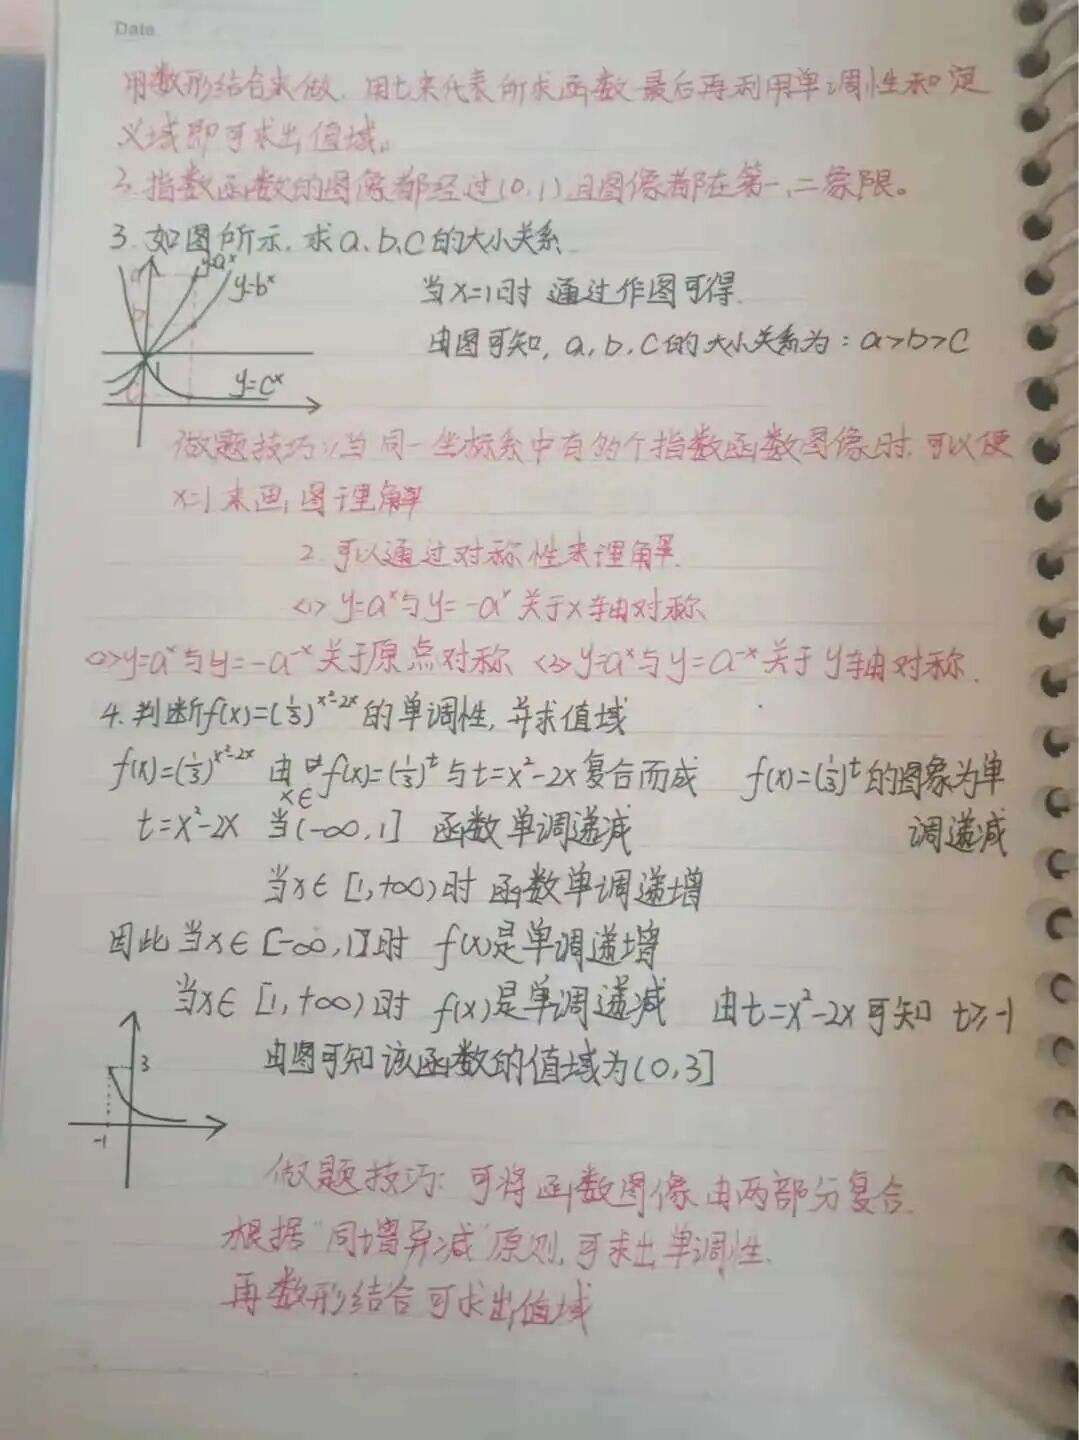 Date
用数形结合来做.用t来代表所求函数最后再利用单调性和定
义域即可求出值域。
3.指数函数的图像都经过(0,1)且图像都在第一、二象限。
3.如图所示.求a、b、c的大小关系.
y=aˣ
y=bˣ
当x=1时 通过作图可得.
由图可知,a,b,c的大小关系为:a>b>c
y=cˣ
做题技巧:1,当同一坐标系中有多个指数函数图像时,可以使
x=1来画图理解
2.可以通过对称性来理解.
<1> y=aˣ与y=-aˣ关于x轴对称
<2>y=aˣ与y=-a⁻ˣ关于原点对称 <3>y=aˣ与y=a⁻ˣ关于y轴对称.
4.判断f(x)=(1/3)^(x²-2x)的单调性,并求值域
f(x)=(1/3)^(x²-2x) 由 f(x)=(1/3)^t与t=x²-2x复合而成 f(x)=(1/3)^t的图象为单
x∈
t=x²-2x 当(-∞,1] 函数单调递减 调递减
当x∈[1,+∞)时 函数单调递增
因此当x∈[-∞,1]时 f(x)是单调递增
当x∈[1,+∞)时 f(x)是单调递减 由t=x²-2x可知 t≥-1
由图可知该函数的值域为(0,3]
3
-1
做题技巧:可将函数图像由两部分复合.
根据"同增异减"原则,可求出单调性.
再数形结合可求出值域